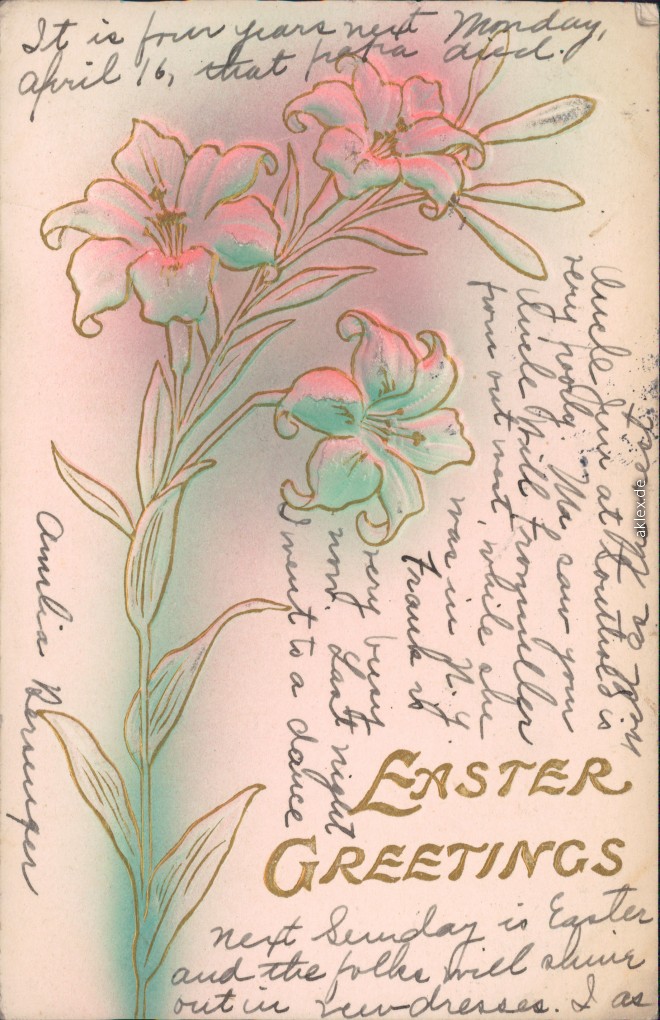 It is four years next Monday,
April 16, that papa died.
Uncle Jim at Southold is
very poorly Ma saw your
Uncle Will Tronmiller
from out west while she
was in N.Y.
Frank is
very busy
now. Last night
I went to a dance
Amelia Berringer
EASTER
GREETINGS
next Sunday is Easter
and the folks will shine
out in new dresses. I as
aklex.de